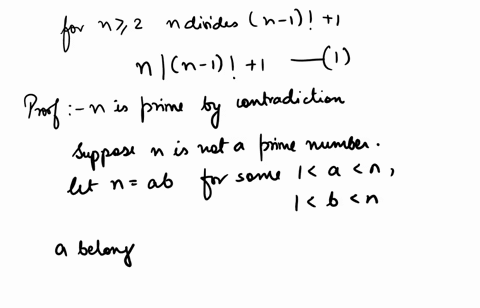 for n ≥ 2 n divides (n-1)! + 1
n | (n-1)! + 1 —(1)
Proof :- n is prime by contradiction
Suppose n is not a prime number.
let n = ab for some 1 < a < n,
1 < b < n
a belong